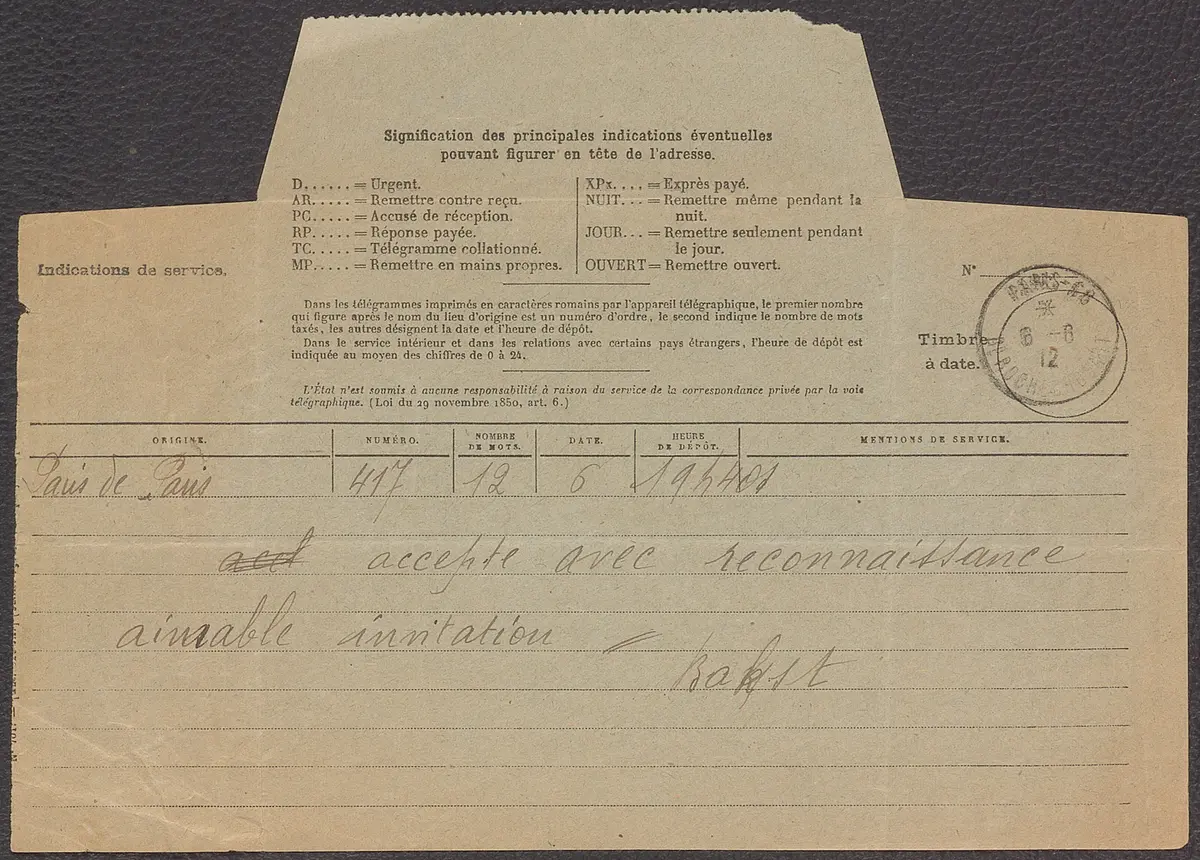 Signification des principales indications éventuelles
pouvant figurer en tête de l'adresse.
D...... = Urgent.
AR..... = Remettre contre reçu.
PC..... = Accusé de réception.
RP..... = Réponse payée.
TC..... = Télégramme collationné.
MP..... = Remettre en mains propres.
XPx.... = Exprès payé.
NUIT... = Remettre même pendant la
nuit.
JOUR... = Remettre seulement pendant
le jour.
OUVERT = Remettre ouvert.
Indications de service.
Dans les télégrammes imprimés en caractères romains par l'appareil télégraphique, le premier nombre
qui figure après le nom du lieu d'origine est un numéro d'ordre, le second indique le nombre de mots
taxés, les autres désignent la date et l'heure de dépôt.
Dans le service intérieur et dans les relations avec certains pays étrangers, l'heure de dépôt est
indiquée au moyen des chiffres de 0 à 24.
L'État n'est soumis à aucune responsabilité à raison du service de la correspondance privée par la voie
télégraphique. (Loi du 29 novembre 1850, art. 6.)
N°
Timbre
à date.
PARIS
6 - 6
12
ORIGINE. NUMÉRO. NOMBRE DE MOTS. DATE. HEURE DE DÉPÔT. MENTIONS DE SERVICE.
Paris de Paris 417 12 6 19h40s
accepte avec reconnaissance
aimable invitation =
Bakst